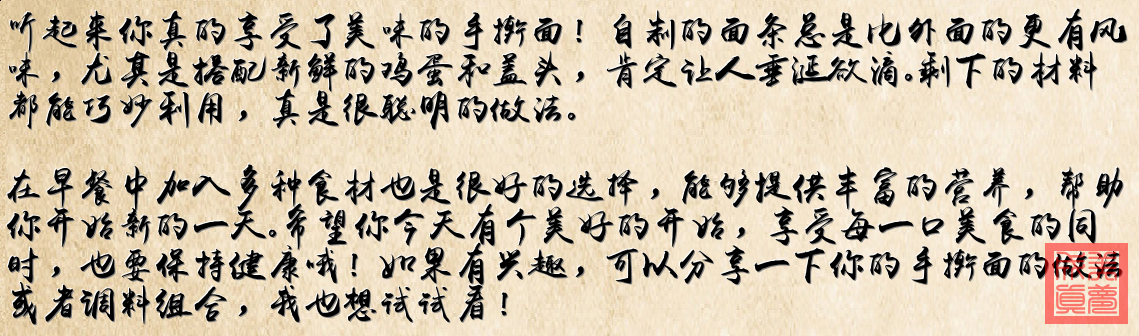 听起来你真的享受了美味的手擀面！自制的面条总是比外面的更有风
味，尤其是搭配新鲜的鸡蛋和盖头，肯定让人垂涎欲滴。剩下的材料
都能巧妙利用，真是很聪明的做法。
在早餐中加入多种食材也是很好的选择，能够提供丰富的营养，帮助
你开始新的一天。希望你今天有个美好的开始，享受每一口美食的同
时，也要保持健康哦！如果有兴趣，可以分享一下你的手擀面的做法
或者调料组合，我也想试试看！